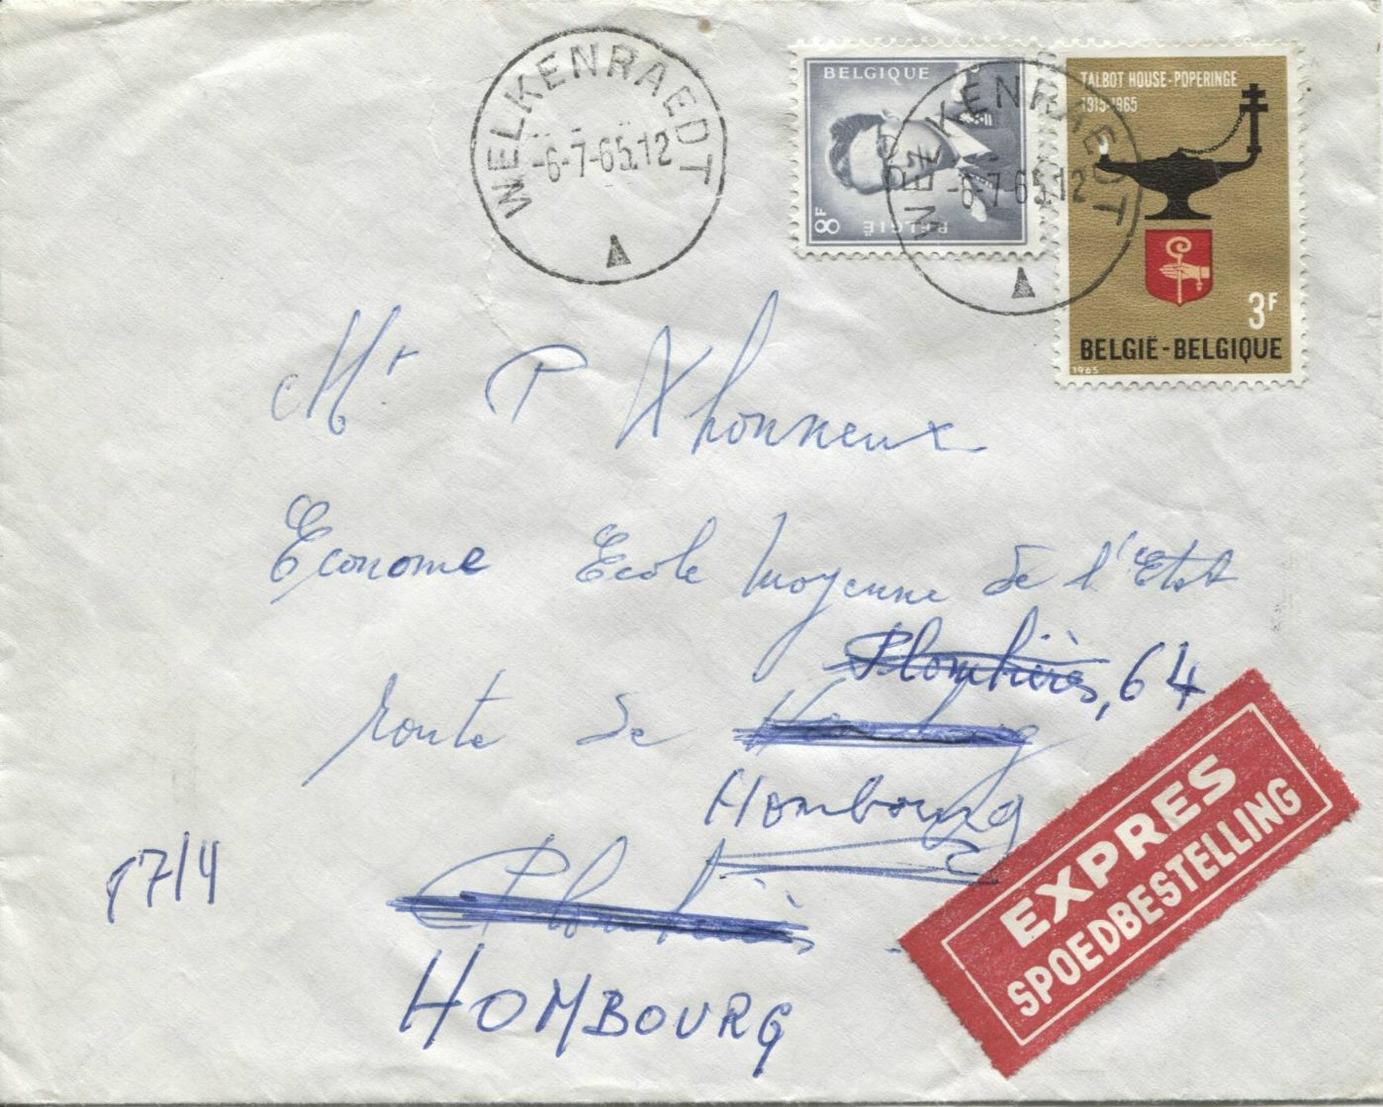 WELKENRAEDT
-6-7-65.12
BELGIQUE
8F
BELGIË
WELKENRAEDT
-6-7-65.12
TALBOT HOUSE-POPERINGE
1915-1965
3F
BELGIË-BELGIQUE
1965
Mr P Xhonneux
Econome Ecole Moyenne de l'Etat
Plombières, 64
route de
Hombourg
Plombières
HOMBOURG
17/4
EXPRES
SPOEDBESTELLING